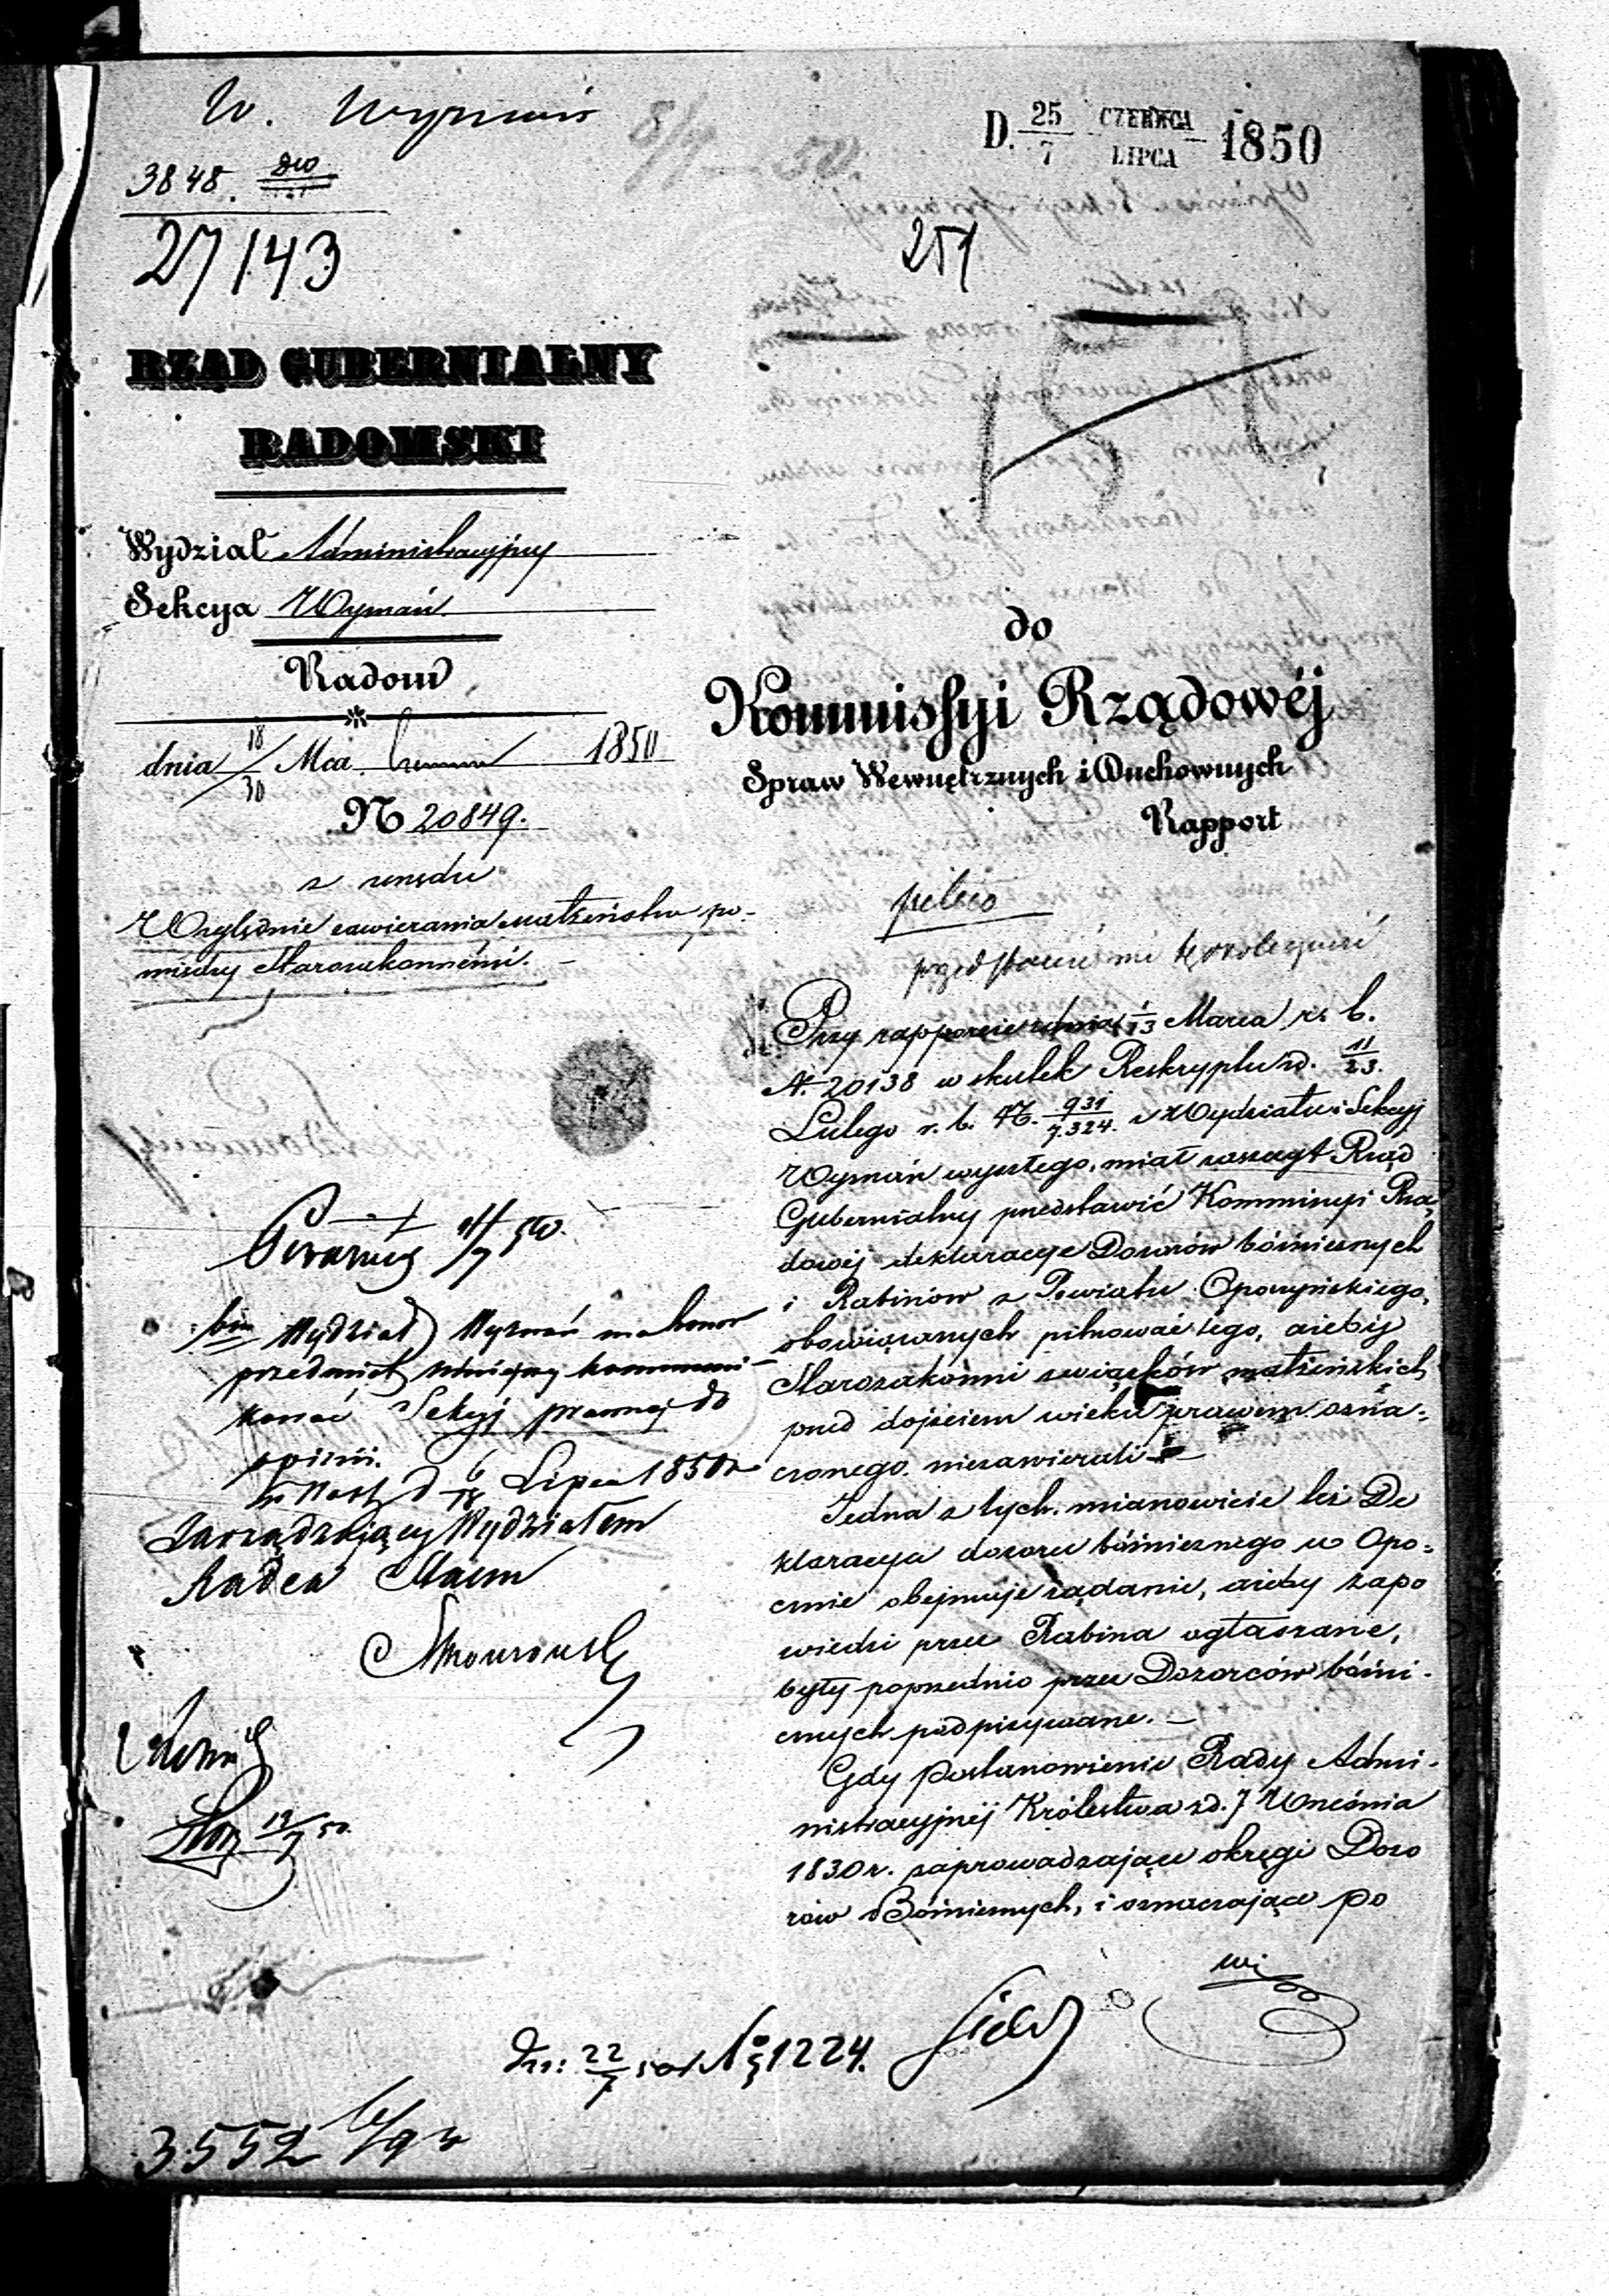 W. Wyznań
3848.
27143
D. 25/7 CZERWCA/LIPCA 1850
251
RZĄD GUBERNIALNY
RADOMSKI
Wydział Administracyjny
Sekcya Wyznań
Radom
dnia 18/30 Mca Czerwca 1850
N 20849.
z urzędu
Względnie zawierania małżeństw po-
między Starozakonnémi. -
do
Kommissyi Rządowéj
Spraw Wewnętrznych i Duchownych
Rapport
pilno
przedstawić mi tę okoliczność
Przy rapporcie z dnia 1/13 Marca r. b.
N. 20138 w skutek Reskryptu z d. 11/23.
Lutego r. b. N. 931/7.324. z Wydziału i Sekcyj
Wyznań wyszłego, miał zaszczyt Rząd
Gubernialny przedstawić Kommissyi Rzą
dowéj deklaracye Dozorów bóżnicznych
i Rabinów z Powiatu Opoczyńskiego,
obowiązanych pilnować tego, ażeby
Starozakonni związków małżeńskich
przed dojściem wieku prawem ozna-
czonego niezawierali -
Jedna z tych. mianowicie też De
klaracya dozoru bóżnicznego w Opo-
cznie obejmuje żądanie, ażeby zapo
wiedzi przez Rabina ogłaszane,
były poprzednio przez Dozorców bóżni-
cznych podpisywane. -
Gdy postanowienie Rady Admi-
nistracyjnéj Królestwa z d. 7 Września
1830 r. zaprowadzające okręgi Dozo
rów Bóżnicznych, i oznaczające po
11/7 50.
Wydział Wyznań ma honor
przedmiot niniejszy kommuni-
kować Sekcyj prawnej do
opinii.
w Warsz d 6/18 Lipca 1850 r
Zarządzający Wydziałem
Radca Stanu
12/7 50.
22/7 50 No 1224.
3552